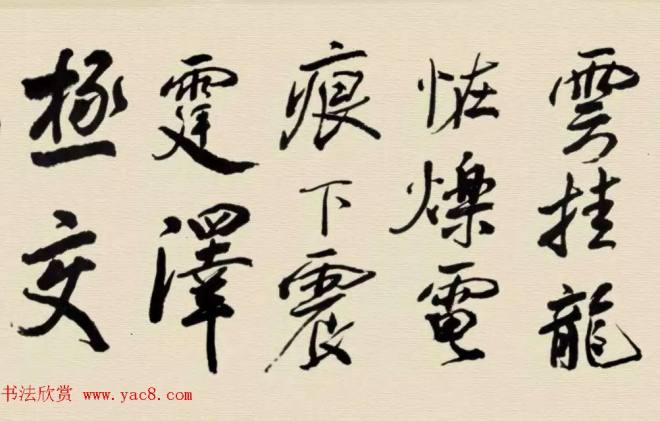 雲挂龍
怪爍電
痕下震
霆澤
極交
书法欣赏 www.yac8.com